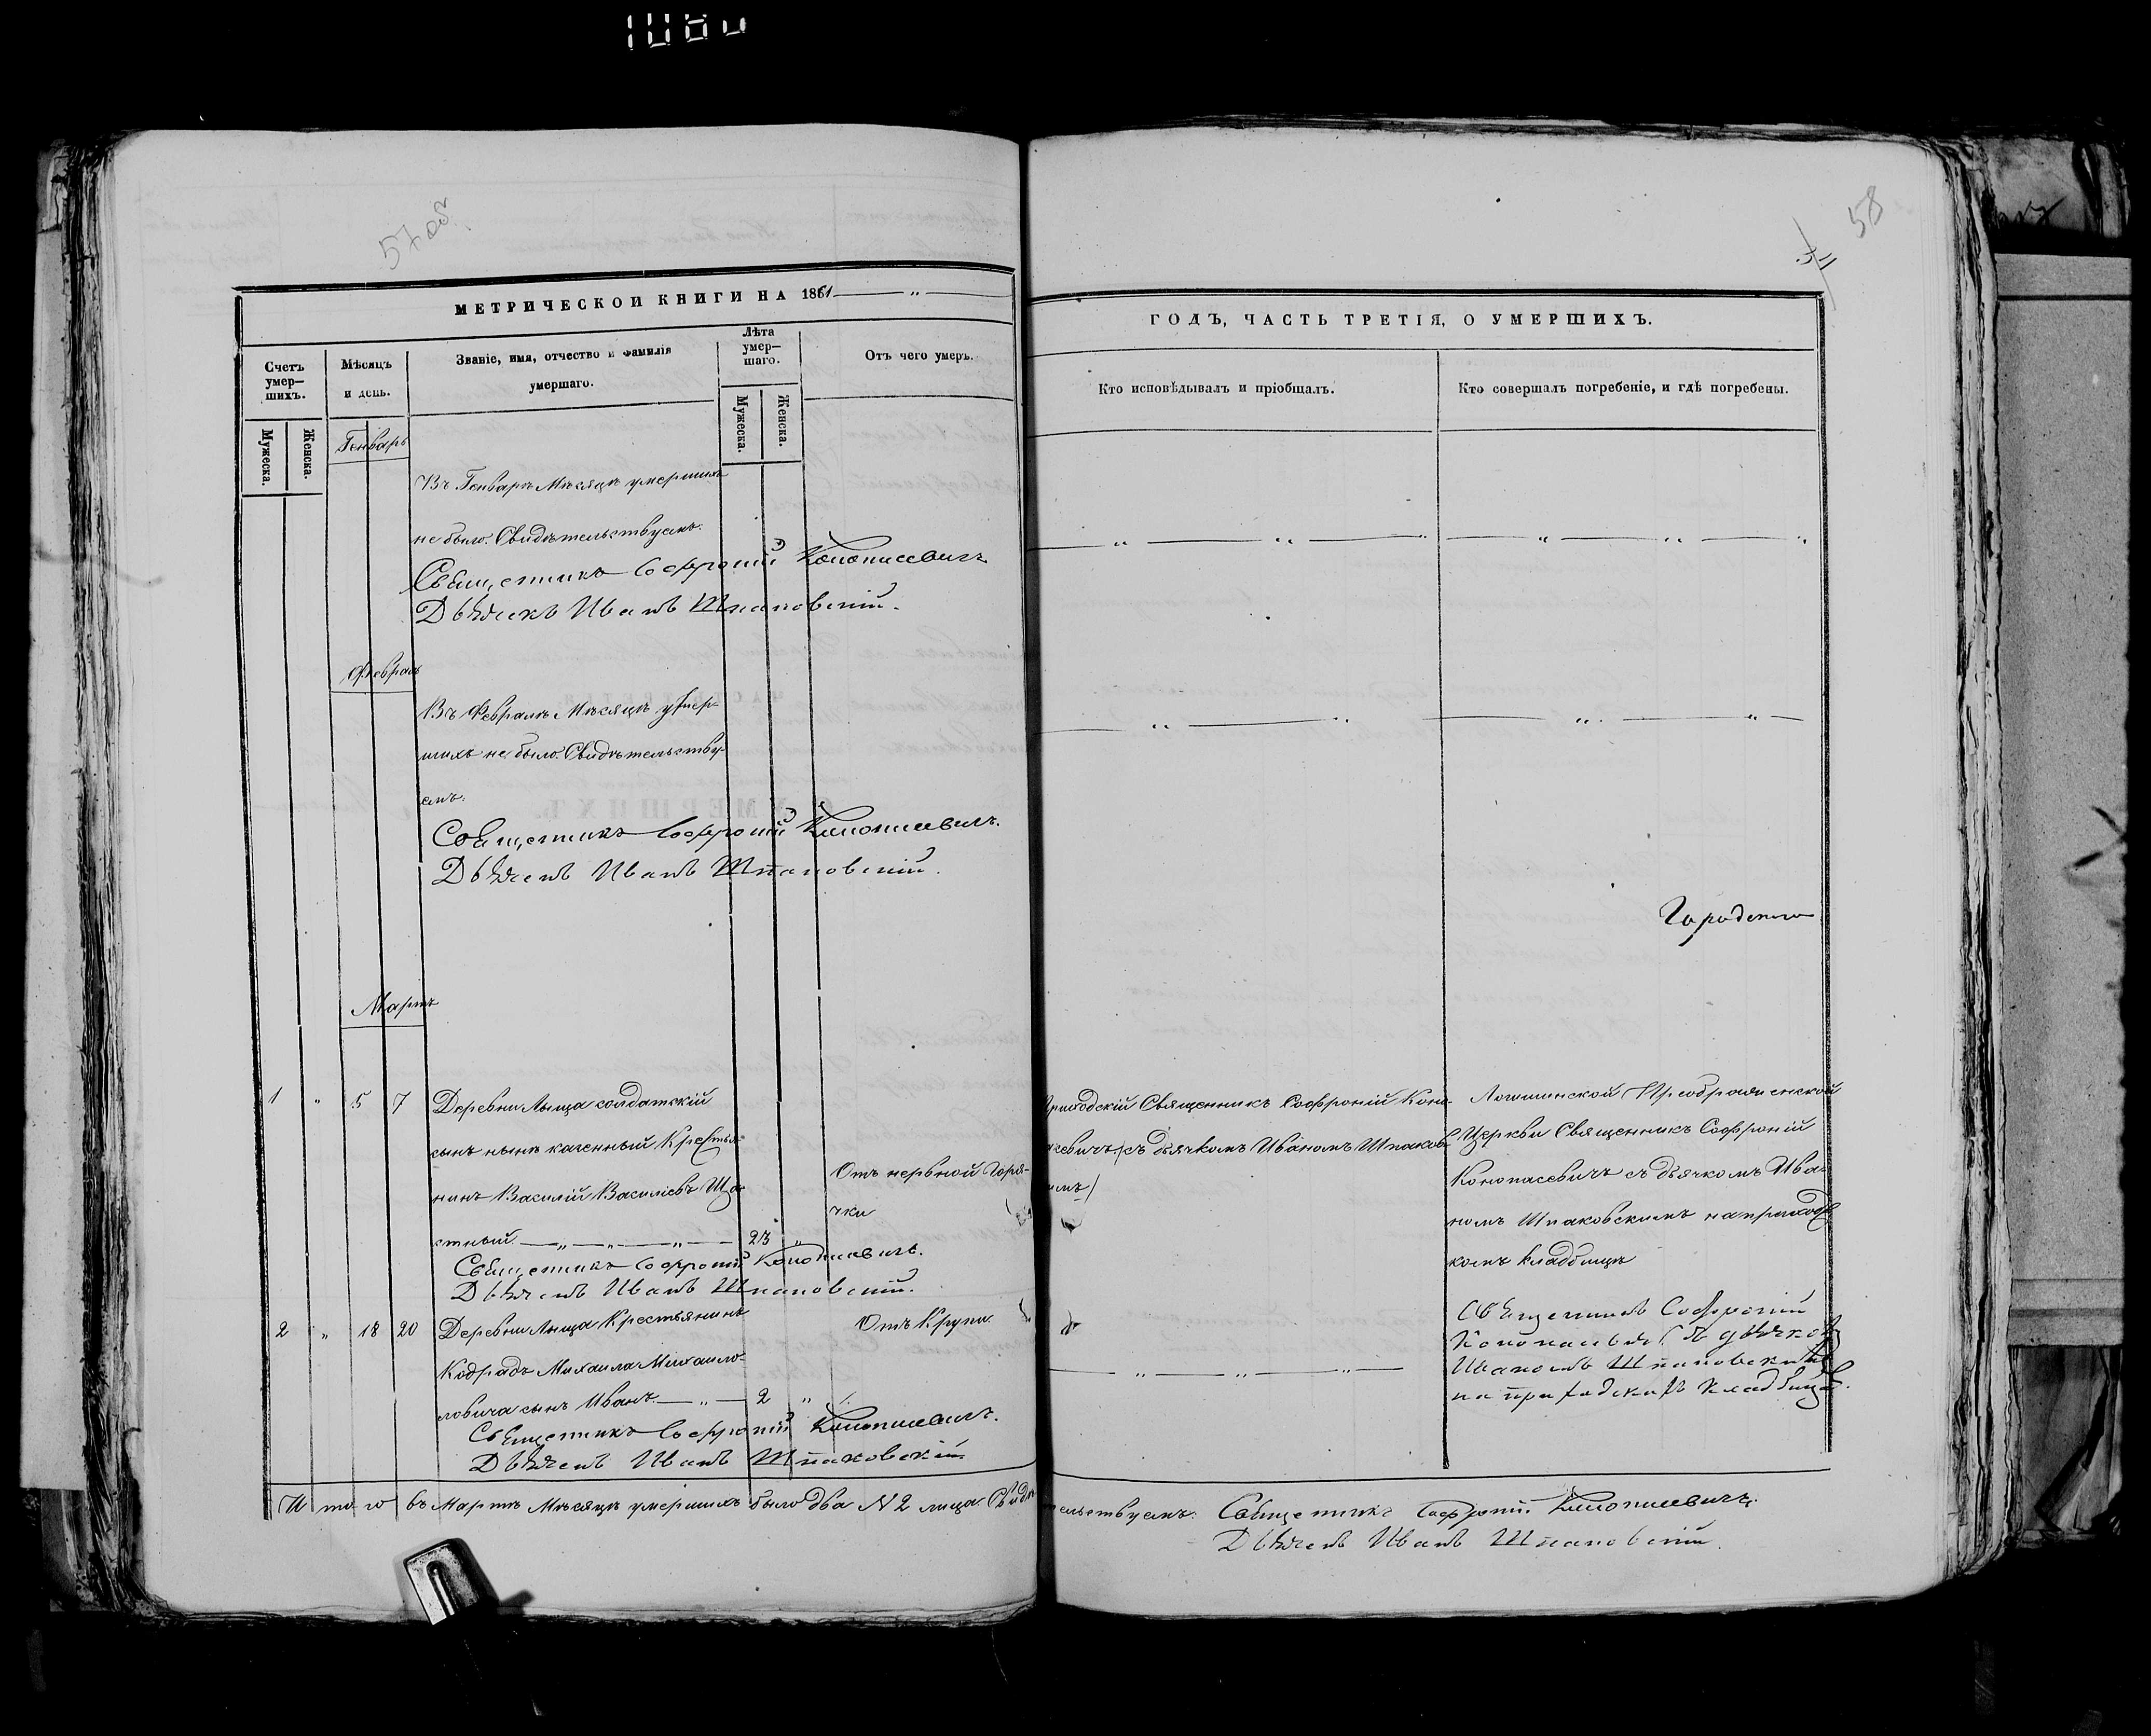 57 об.
58
МЕТРИЧЕСКОЙ КНИГИ НА 1861
ГОДЪ, ЧАСТЬ ТРЕТІЯ, О УМЕРШИХЪ.
Счетъ умер-шихъ.
Мужеска.
Женска.
Мѣсяцъ и день.
Званіе, имя, отчество и фамилія умершаго.
Лѣта умер-шаго.
Мужеска.
Женска.
Отъ чего умеръ.
Кто исповѣдывалъ и пріобщалъ.
Кто совершалъ погребеніе, и гдѣ погребены.
Генварь
Въ Генварѣ Мѣсяцѣ умершихъ
не было. Свидѣтельствуемъ:
Священникъ Софроній Конопасевичъ
Дьячекъ Иванъ Шпаковскій.
Февраль
Въ Февралѣ Мѣсяцѣ умер-
шихъ не было. Свидѣтельству-
емъ:
Священникъ Софроній Конопасевичъ.
Дьячекъ Иванъ Шпаковскій.
Мартъ
1 " 5 7 Деревни Лыща солдатскій
сынъ нынѣ казенный Крестья-
нинъ Василій Василіевъ Ща-
стный. 23 "
Отъ нервной Горя-
чки
Священникъ Софроній Конопасевичъ.
Дьячекъ Иванъ Шпаковскій.
Приходскій Священникъ Софроній Коно-
пасевичъ /съ дьячкомъ Иваномъ Шпаков-
Логишинской Преображенской
Церкви Священникъ Софроній
Конопасевичъ съ дьячкомъ Ива-
номъ Шпаковскимъ на приходс-
комъ кладбищѣ
2 " 18 20 Деревни Лыща Крестьянинъ
Михаила Михаило-
ловича сынъ Иванъ. 2 "
Отъ Крупа.
Священникъ Софроній Конопасевичъ.
Дьячекъ Иванъ Шпаковскій
Священникъ Софроній
Конопасевич съ дьячко
Иваномъ Шпаковскимъ
на приходскомъ кладбищѣ.
Итого въ Мартѣ Мѣсяцѣ умершихъ было два N 2 лица Свидѣтельствуемъ: Священникъ Софроній Конопасевичъ.
Дьячекъ Иванъ Шпаковскій.